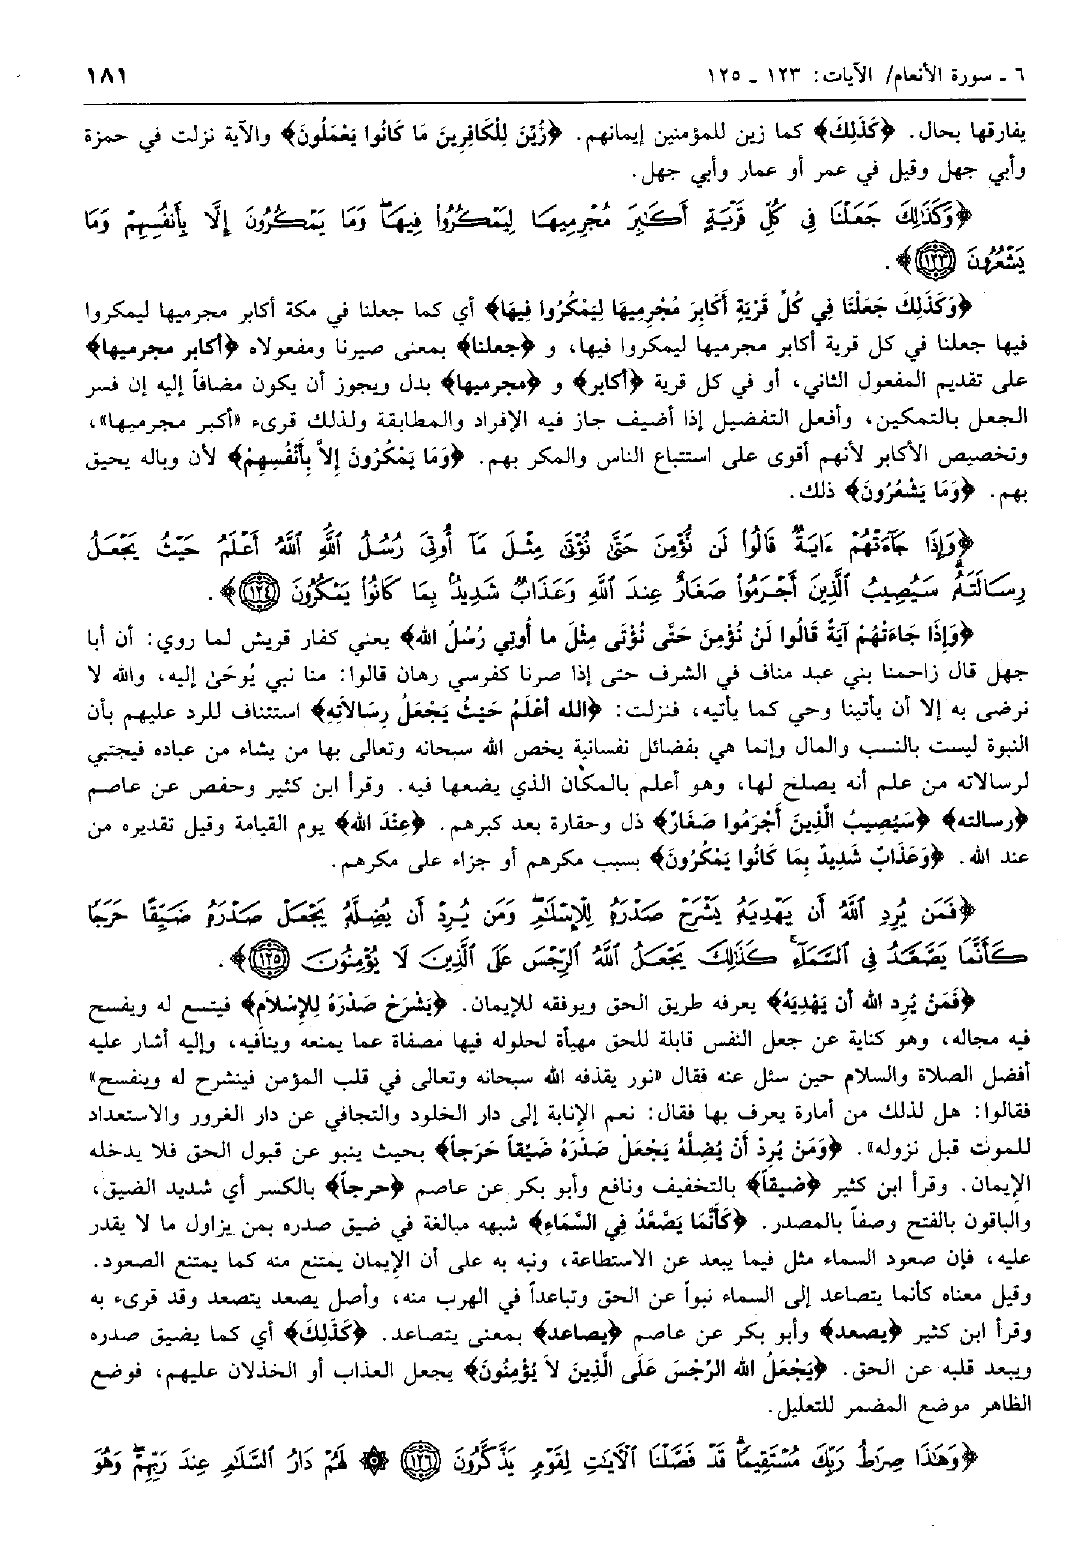 ٦ ـ سورة الأنعام/ الآيات: ١٢٣ ـ ١٢٥ ١٨١
يفارقها بحال. ﴿كَذَلِكَ﴾ كما زين للمؤمنين إيمانهم. ﴿زُيِّنَ لِلْكَافِرِينَ مَا كَانُوا يَعْمَلُونَ﴾ والآية نزلت في حمزة
وأبي جهل وقيل في عمر أو عمار وأبي جهل.
﴿وَكَذَٰلِكَ جَعَلْنَا فِى كُلِّ قَرْيَةٍ أَكَـٰبِرَ مُجْرِمِيهَا لِيَمْكُرُوا۟ فِيهَا ۖ وَمَا يَمْكُرُونَ إِلَّا بِأَنفُسِهِمْ وَمَا
يَشْعُرُونَ ﴿١٢٣﴾﴾.
﴿وَكَذَلِكَ جَعَلْنَا فِي كُلِّ قَرْيَةٍ أَكَابِرَ مُجْرِمِيهَا لِيَمْكُرُوا فِيهَا﴾ أي كما جعلنا في مكة أكابر مجرميها ليمكروا
فيها جعلنا في كل قرية أكابر مجرميها ليمكروا فيها، و ﴿جعلنا﴾ بمعنى صيرنا ومفعولاه ﴿أكابر مجرميها﴾
على تقديم المفعول الثاني، أو في كل قرية ﴿أكابر﴾ و ﴿مجرميها﴾ بدل ويجوز أن يكون مضافاً إليه إن فسر
الجعل بالتمكين، وأفعل التفضيل إذا أضيف جاز فيه الإفراد والمطابقة ولذلك قرىء «أكبر مجرميها»،
وتخصيص الأكابر لأنهم أقوى على استتباع الناس والمكر بهم. ﴿وَمَا يَمْكُرُونَ إِلاَّ بِأَنْفُسِهِمْ﴾ لأن وباله يحيق
بهم. ﴿وَمَا يَشْعُرُونَ﴾ ذلك.
﴿وَإِذَا جَآءَتْهُمْ ءَايَةٌ قَالُوا۟ لَن نُّؤْمِنَ حَتَّىٰ نُؤْتَىٰ مِثْلَ مَآ أُوتِىَ رُسُلُ ٱللَّهِ ۘ ٱللَّهُ أَعْلَمُ حَيْثُ يَجْعَلُ
رِسَالَتَهُۥ ۗ سَيُصِيبُ ٱلَّذِينَ أَجْرَمُوا۟ صَغَارٌ عِندَ ٱللَّهِ وَعَذَابٌ شَدِيدٌۢ بِمَا كَانُوا۟ يَمْكُرُونَ ﴿١٢٤﴾﴾.
﴿وَإِذَا جَاءَتْهُمْ آيَةٌ قَالُوا لَنْ نُؤْمِنَ حَتَّى نُؤْتَى مِثْلَ ما أُوتِي رُسُلُ الله﴾ يعني كفار قريش لما روي: أن أبا
جهل قال زاحمنا بني عبد مناف في الشرف حتى إذا صرنا كفرسي رهان قالوا: منا نبي يُوحَىٰ إليه، والله لا
نرضى به إلا أن يأتينا وحي كما يأتيه، فنزلت: ﴿الله أعْلَمُ حَيْثُ يَجْعَلُ رِسَالاَتِهِ﴾ استئناف للرد عليهم بأن
النبوة ليست بالنسب والمال وإنما هي بفضائل نفسانية يخص الله سبحانه وتعالى بها من يشاء من عباده فيجتبي
لرسالاته من علم أنه يصلح لها، وهو أعلم بالمكان الذي يضعها فيه. وقرأ ابن كثير وحفص عن عاصم
﴿رسالته﴾ ﴿سَيُصِيبُ الَّذِينَ أَجْرَمُوا صَغَارٌ﴾ ذل وحقارة بعد كبرهم. ﴿عِنْدَ الله﴾ يوم القيامة وقيل تقديره من
عند الله. ﴿وَعَذَابٌ شَدِيدٌ بِمَا كَانُوا يَمْكُرُونَ﴾ بسبب مكرهم أو جزاء على مكرهم.
﴿فَمَن يُرِدِ ٱللَّهُ أَن يَهْدِيَهُۥ يَشْرَحْ صَدْرَهُۥ لِلْإِسْلَـٰمِ ۖ وَمَن يُرِدْ أَن يُضِلَّهُۥ يَجْعَلْ صَدْرَهُۥ ضَيِّقًا حَرَجًا
كَأَنَّمَا يَصَّعَّدُ فِى ٱلسَّمَآءِ ۚ كَذَٰلِكَ يَجْعَلُ ٱللَّهُ ٱلرِّجْسَ عَلَى ٱلَّذِينَ لَا يُؤْمِنُونَ ﴿١٢٥﴾﴾.
﴿فَمَنْ يُرِد الله أن يَهْدِيَهُ﴾ يعرفه طريق الحق ويوفقه للإيمان. ﴿يَشْرَحْ صَدْرَهُ لِلإِسْلاَمِ﴾ فيتسع له ويفسح
فيه مجاله، وهو كناية عن جعل النفس قابلة للحق مهيأة لحلوله فيها مصفاة عما يمنعه وينافيه، وإليه أشار عليه
أفضل الصلاة والسلام حين سئل عنه فقال «نور يقذفه الله سبحانه وتعالى في قلب المؤمن فينشرح له وينفسح»
فقالوا: هل لذلك من أمارة يعرف بها فقال: نعم الإنابة إلى دار الخلود والتجافي عن دار الغرور والاستعداد
للموت قبل نزوله». ﴿وَمَنْ يُرِدْ أَنْ يُضِلَّهُ يَجْعَلْ صَدْرَهُ ضَيِّقاً حَرَجاً﴾ بحيث ينبو عن قبول الحق فلا يدخله
الإيمان. وقرأ ابن كثير ﴿ضيقاً﴾ بالتخفيف ونافع وأبو بكر عن عاصم ﴿حرجاً﴾ بالكسر أي شديد الضيق،
والباقون بالفتح وصفاً بالمصدر. ﴿كَأَنَّمَا يَصَّعَّدُ فِي السَّمَاءِ﴾ شبهه مبالغة في ضيق صدره بمن يزاول ما لا يقدر
عليه، فإن صعود السماء مثل فيما يبعد عن الاستطاعة، ونبه به على أن الإيمان يمتنع منه كما يمتنع الصعود.
وقيل معناه كأنما يتصاعد إلى السماء نبواً عن الحق وتباعداً في الهرب منه، وأصل يصعد يتصعد وقد قرىء به
وقرأ ابن كثير ﴿يصعد﴾ وأبو بكر عن عاصم ﴿يصاعد﴾ بمعنى يتصاعد. ﴿كَذَلِكَ﴾ أي كما يضيق صدره
ويبعد قلبه عن الحق. ﴿يَجْعَلُ الله الرِّجْسَ عَلَى الَّذِينَ لاَ يُؤْمِنُونَ﴾ يجعل العذاب أو الخذلان عليهم، فوضع
الظاهر موضع المضمر للتعليل.
﴿وَهَـٰذَا صِرَٰطُ رَبِّكَ مُسْتَقِيمًا ۗ قَدْ فَصَّلْنَا ٱلْـَٔايَـٰتِ لِقَوْمٍ يَذَّكَّرُونَ ﴿١٢٦﴾ ۞ لَهُمْ دَارُ ٱلسَّلَـٰمِ عِندَ رَبِّهِمْ ۖ وَهُوَ